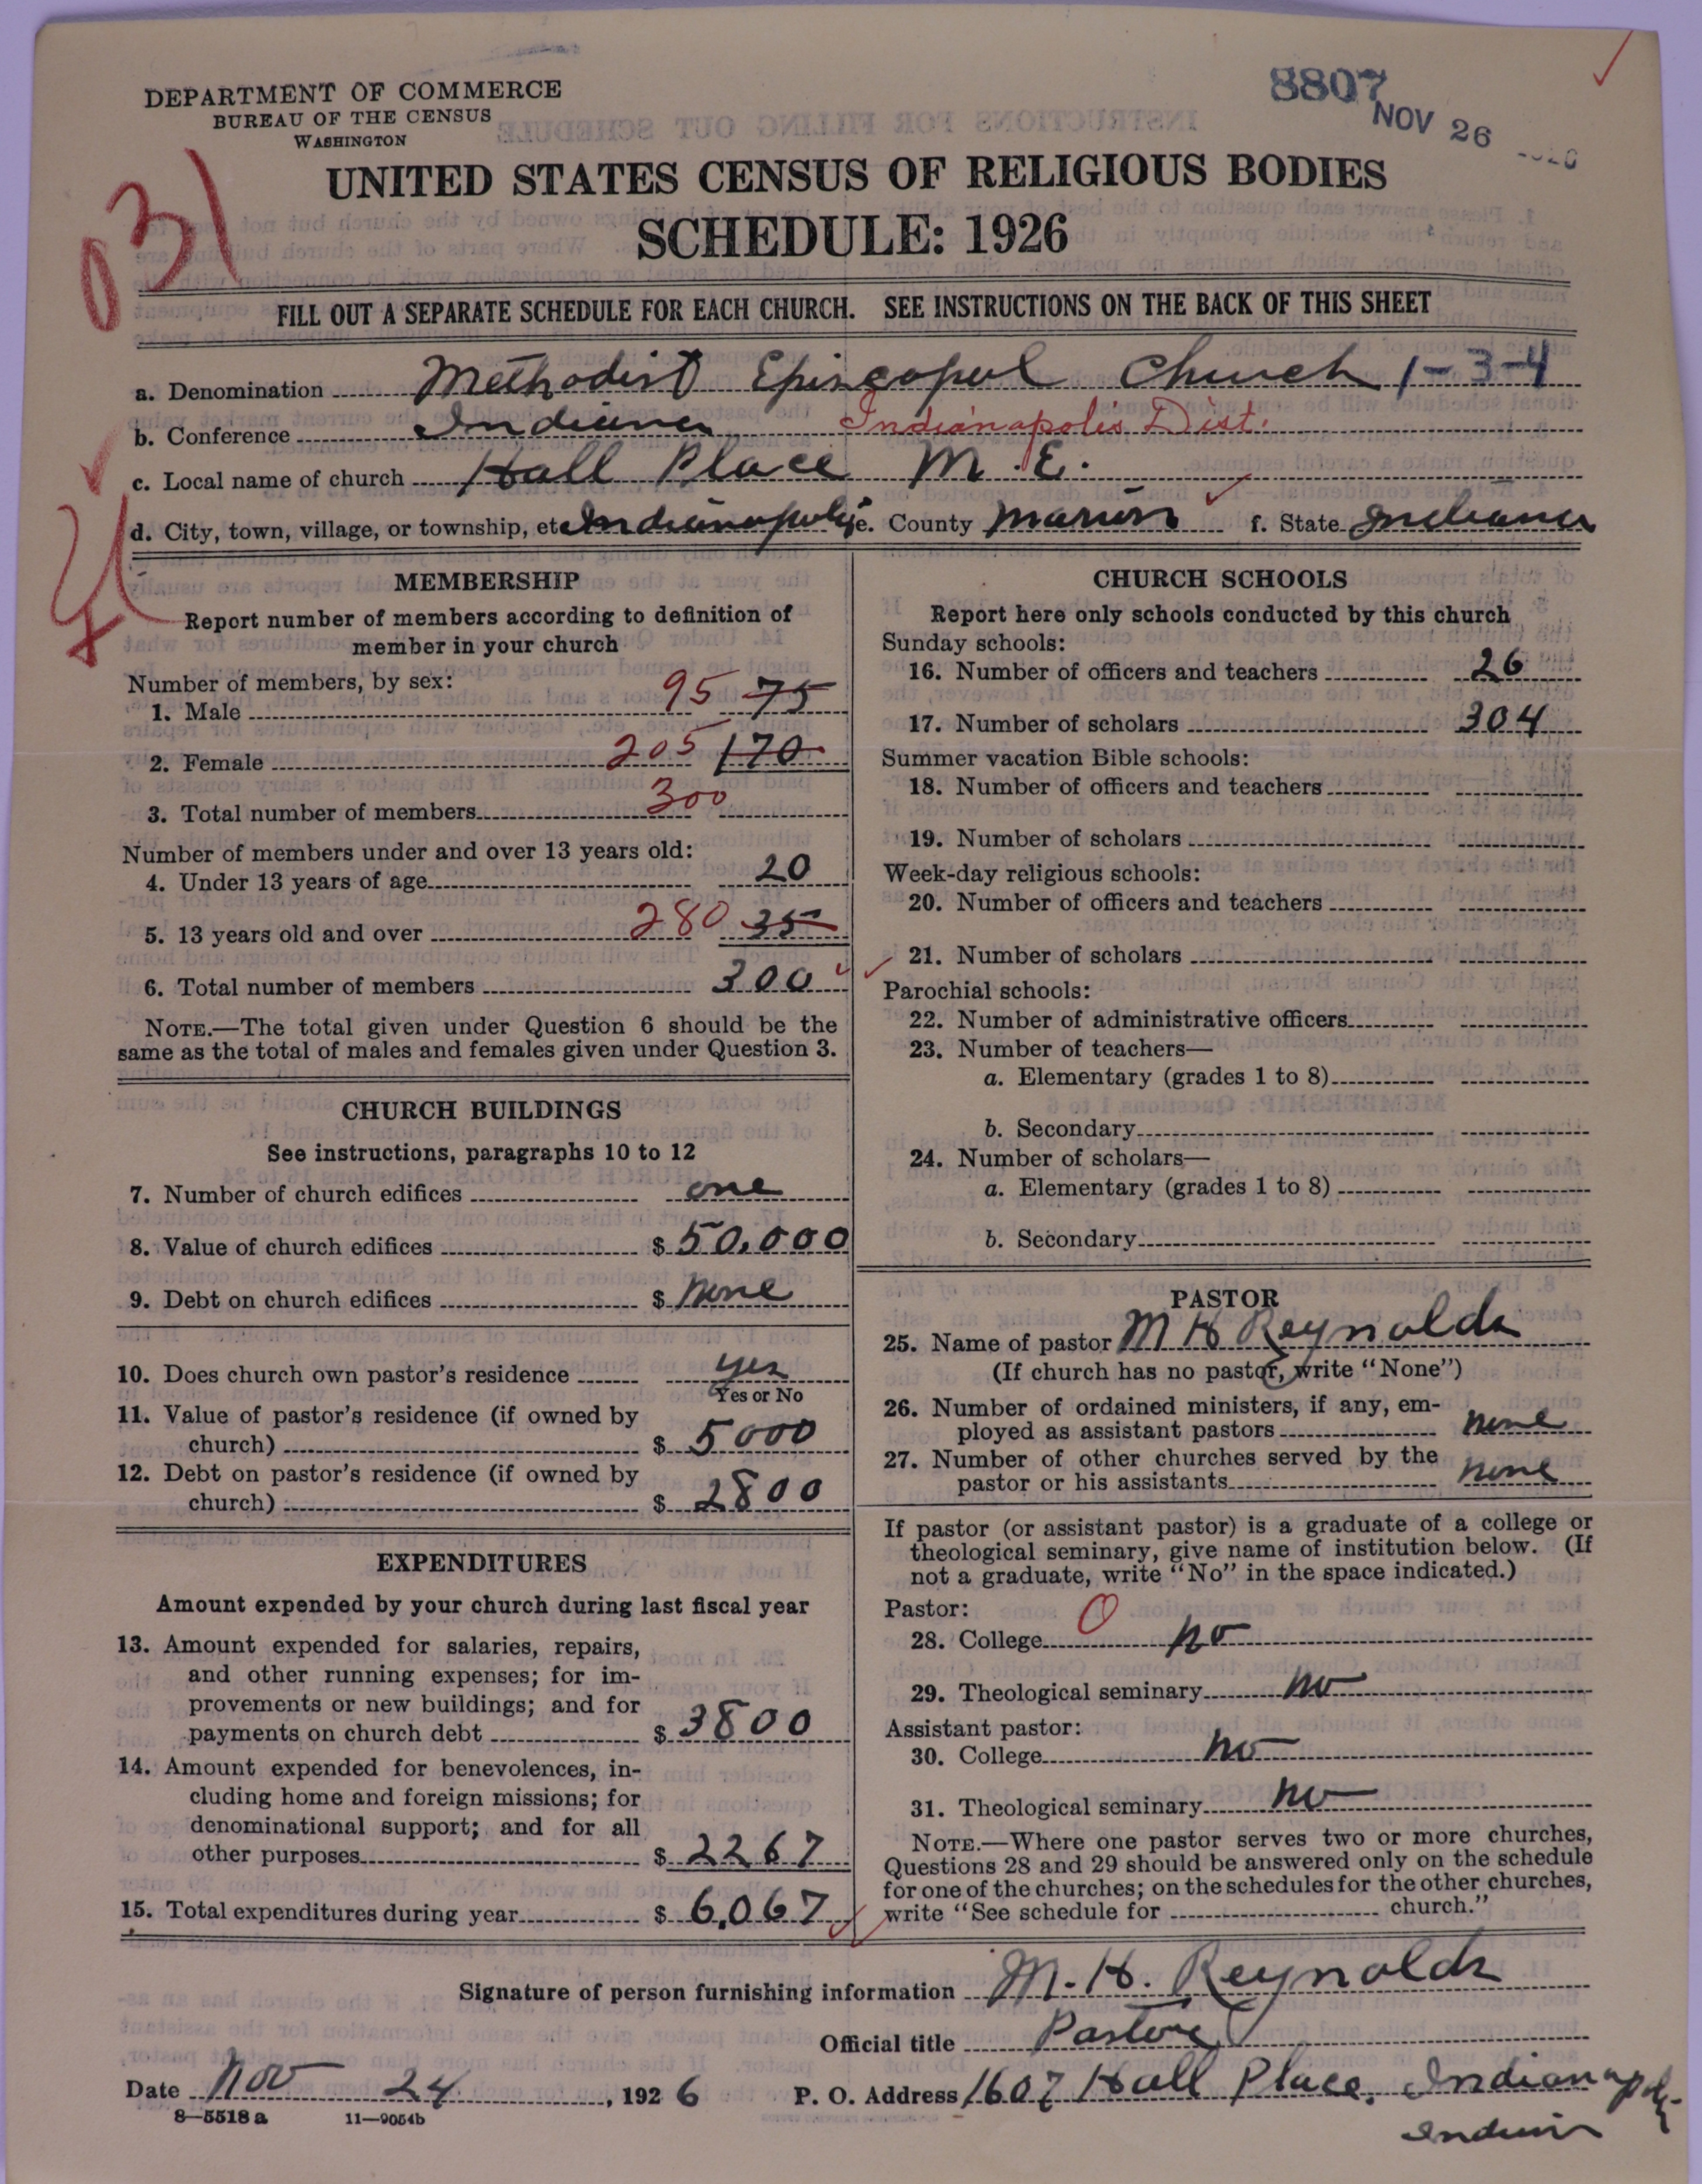 DEPARTMENT OF COMMERCE
BUREAU OF THE CENSUS
WASHINGTON
8807
NOV 26
031
UNITED STATES CENSUS OF RELIGIOUS BODIES
SCHEDULE: 1926
FILL OUT A SEPARATE SCHEDULE FOR EACH CHURCH. SEE INSTRUCTIONS ON THE BACK OF THIS SHEET
a. Denomination Methodist Episcopal Church 1-3-4
b. Conference Indiana Indianapolis Dist.
c. Local name of church Hall Place M.E.
d. City, town, village, or township, etc Indianapolis e. County Marion f. State Indiana
MEMBERSHIP
Report number of members according to definition of
member in your church
Number of members, by sex:
1. Male 95 75
2. Female 205 170
3. Total number of members 300
Number of members under and over 13 years old:
4. Under 13 years of age 20
5. 13 years old and over 280 35
6. Total number of members 300
NOTE.—The total given under Question 6 should be the
same as the total of males and females given under Question 3.
CHURCH BUILDINGS
See instructions, paragraphs 10 to 12
7. Number of church edifices one
8. Value of church edifices $ 50,000
9. Debt on church edifices $ None
10. Does church own pastor's residence yes
Yes or No
11. Value of pastor's residence (if owned by
church) $ 5000
12. Debt on pastor's residence (if owned by
church) $ 2800
EXPENDITURES
Amount expended by your church during last fiscal year
13. Amount expended for salaries, repairs,
and other running expenses; for im-
provements or new buildings; and for
payments on church debt $ 3800
14. Amount expended for benevolences, in-
cluding home and foreign missions; for
denominational support; and for all
other purposes $ 2267
15. Total expenditures during year $ 6,067
CHURCH SCHOOLS
Report here only schools conducted by this church
Sunday schools:
16. Number of officers and teachers 26
17. Number of scholars 304
Summer vacation Bible schools:
18. Number of officers and teachers
19. Number of scholars
Week-day religious schools:
20. Number of officers and teachers
21. Number of scholars
Parochial schools:
22. Number of administrative officers
23. Number of teachers—
a. Elementary (grades 1 to 8)
b. Secondary
24. Number of scholars—
a. Elementary (grades 1 to 8)
b. Secondary
PASTOR
25. Name of pastor M H Reynolds
(If church has no pastor, write "None")
26. Number of ordained ministers, if any, em-
ployed as assistant pastors none
27. Number of other churches served by the
pastor or his assistants none
If pastor (or assistant pastor) is a graduate of a college or
theological seminary, give name of institution below. (If
not a graduate, write "No" in the space indicated.)
Pastor:
28. College 0 no
29. Theological seminary no
Assistant pastor:
30. College no
31. Theological seminary no
NOTE.—Where one pastor serves two or more churches,
Questions 28 and 29 should be answered only on the schedule
for one of the churches; on the schedules for the other churches,
write "See schedule for church."
Signature of person furnishing information M. H. Reynolds
Official title Pastor
Date Nov 24, 1926 P. O. Address 1607 Hall Place, Indianapolis
Indiana
8—5518 a 11—9054b